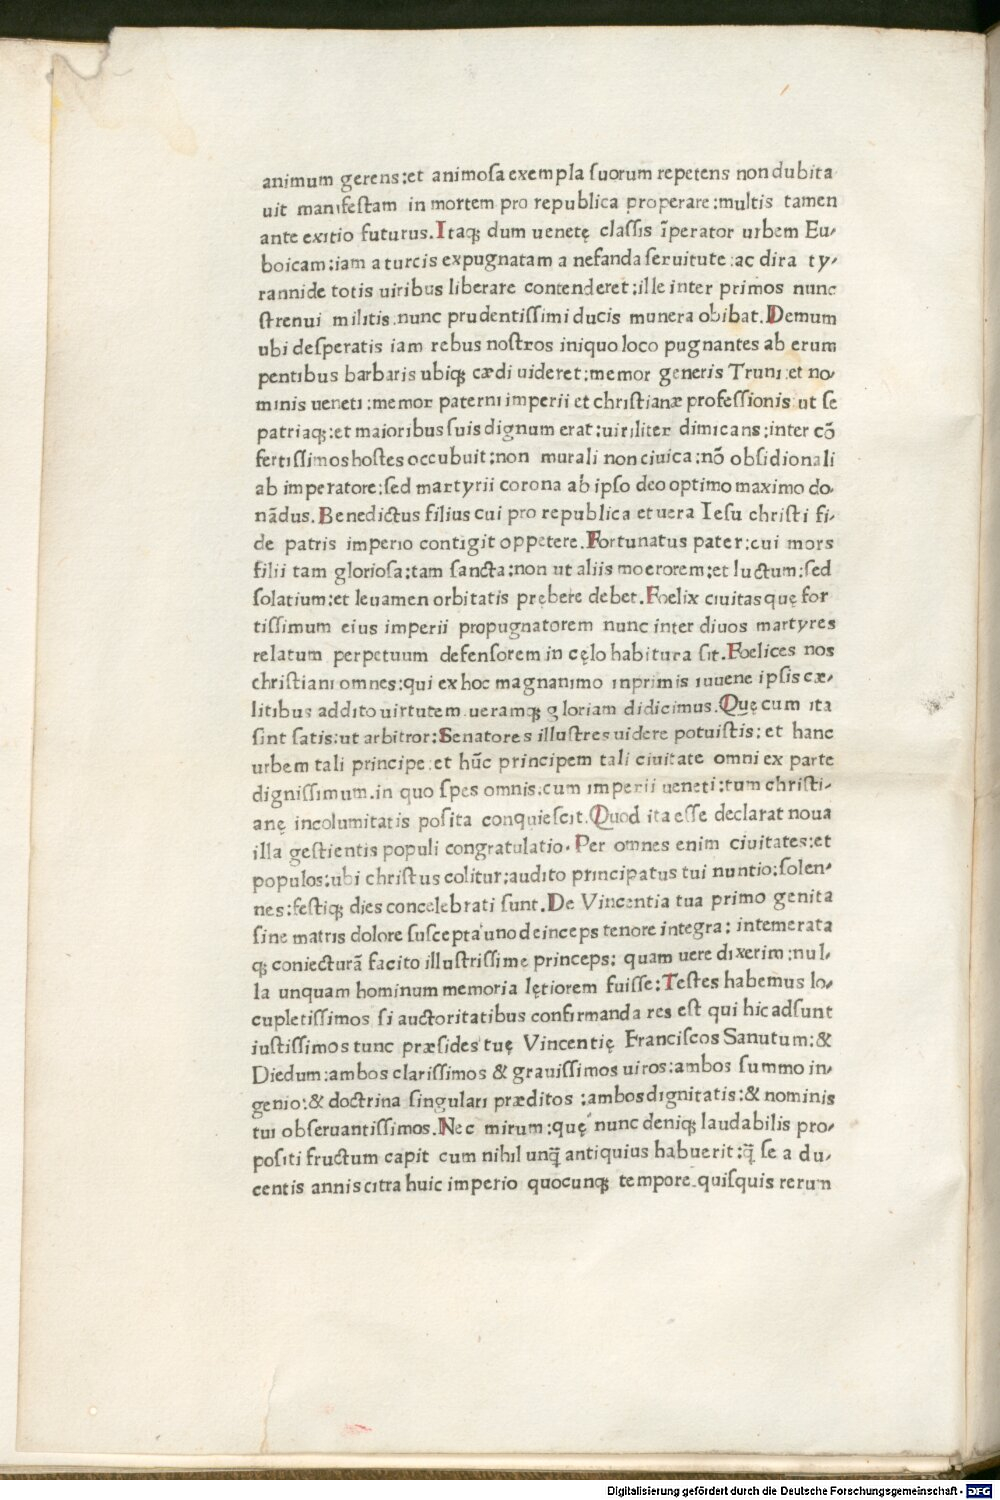 animum gerens:et animosa exempla suorum repetens non dubita
uit manifestam in mortem pro republica properare:multis tamen
ante exitio futurus.Itaqꝫ dum uenetę classis ĩperator urbem Eu-
boicam:iam a turcis expugnatam a nefanda seruitute:ac dira ty-
rannide totis uiribus liberare contenderet:ille inter primos nunc
strenui militis:nunc prudentissimi ducis munera obibat.Demum
ubi desperatis iam rebus nostros iniquo loco pugnantes ab erum
pentibus barbaris ubiqꝫ cædi uideret:memor generis Truni:et no-
minis ueneti:memor paterni imperii et christianæ professionis:ut se
patriaqꝫ:et maioribus suis dignum erat:uiriliter dimicans:inter cõ
fertissimos hostes occubuit:non murali non ciuica:nõ obsidionali
ab imperatore:sed martyrii corona ab ipso deo optimo maximo do-
nãdus.Benedictus filius cui pro republica et uera Iesu christi fi-
de patris imperio contigit oppetere.Fortunatus pater:cui mors
filii tam gloriosa:tam sancta:non ut aliis moerorem:et luctum:sed
solatium:et leuamen orbitatis prębere debet.Foelix ciuitas quę for
tissimum eius imperii propugnatorem nunc inter diuos martyres
relatum perpetuum defensorem in cęlo habitura sit.Foelices nos
christiani omnes:qui ex hoc magnanimo inprimis iuuene ipsis cæ-
litibus addito uirtutem ueramqꝫ gloriam didicimus.Quę cum ita
sint satis:ut arbitror:Senatores illustres uidere potuistis:et hanc
urbem tali principe:et hũc principem tali ciuitate omni ex parte
dignissimum.in quo spes omnis:cum imperii ueneti:tum christi-
anę incolumitatis posita conquiescit.Quod ita esse declarat noua
illa gestientis populi congratulatio. Per omnes enim ciuitates:et
populos:ubi christus colitur:audito principatus tui nuntio:solen-
nes:festiqꝫ dies concelebrati sunt.De Vincentia tua primo genita
sine matris dolore suscepta uno deinceps tenore integra: intemerata
qꝫ coniecturã facito illustrissime princeps: quam uere dixerim:nul-
la unquam hominum memoria lętiorem fuisse:Testes habemus lo-
cupletissimos si auctoritatibus confirmanda res est qui hic adsunt
iustissimos tunc præsides tuę Vincentię Franciscos Sanutum:&
Diedum:ambos clarissimos & grauissimos uiros:ambos summo in-
genio:& doctrina singulari præditos :ambos dignitatis:& nominis
tui obseruantissimos.Nec mirum:quę nunc deniqꝫ laudabilis pro-
positi fructum capit cum nihil unq̃ antiquius habuerit:q̃ se a du-
centis annis citra huic imperio quocunqꝫ tempore quisquis rerum
Digitalisierung gefördert durch die Deutsche Forschungsgemeinschaft - DFG